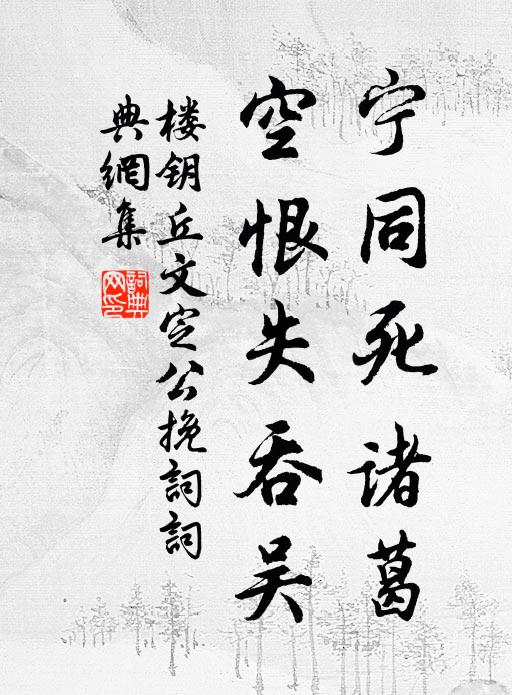 宁同死诸葛
空恨失吞吴
楼钥丘文定公挽詞詞
典網集
詞典
网印